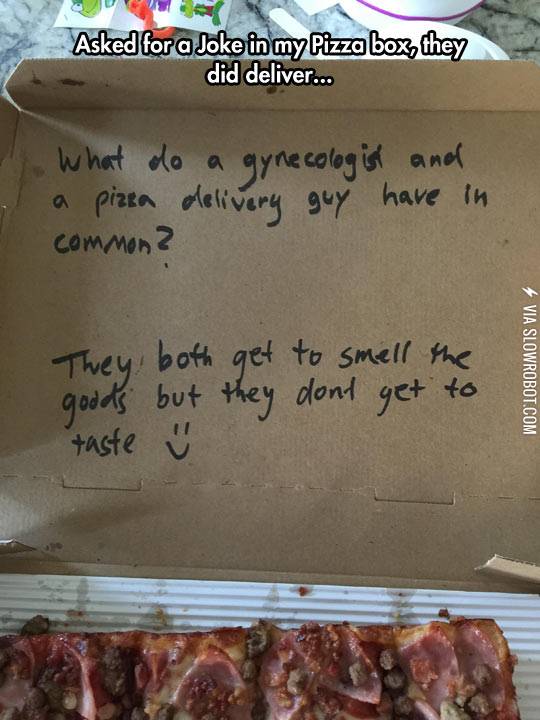 Asked for a Joke in my Pizza box, they
did deliver...
What do a gynecologist and
a pizza delivery guy have in
common?
They both get to smell the
goods but they dont get to
taste
VIA SLOWROBOT.COM